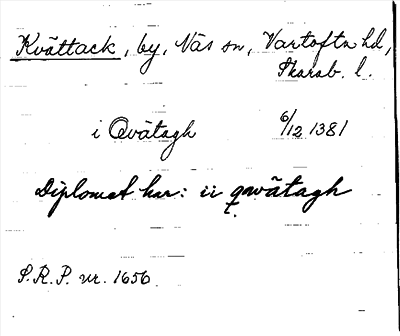 Kvättack, by, Näs sn, Vartofta hd,
Skarab. l.
i Qvätagh 6/12 1381
Diplomet har: ii qwãtagh
S.R.P. nr. 1656